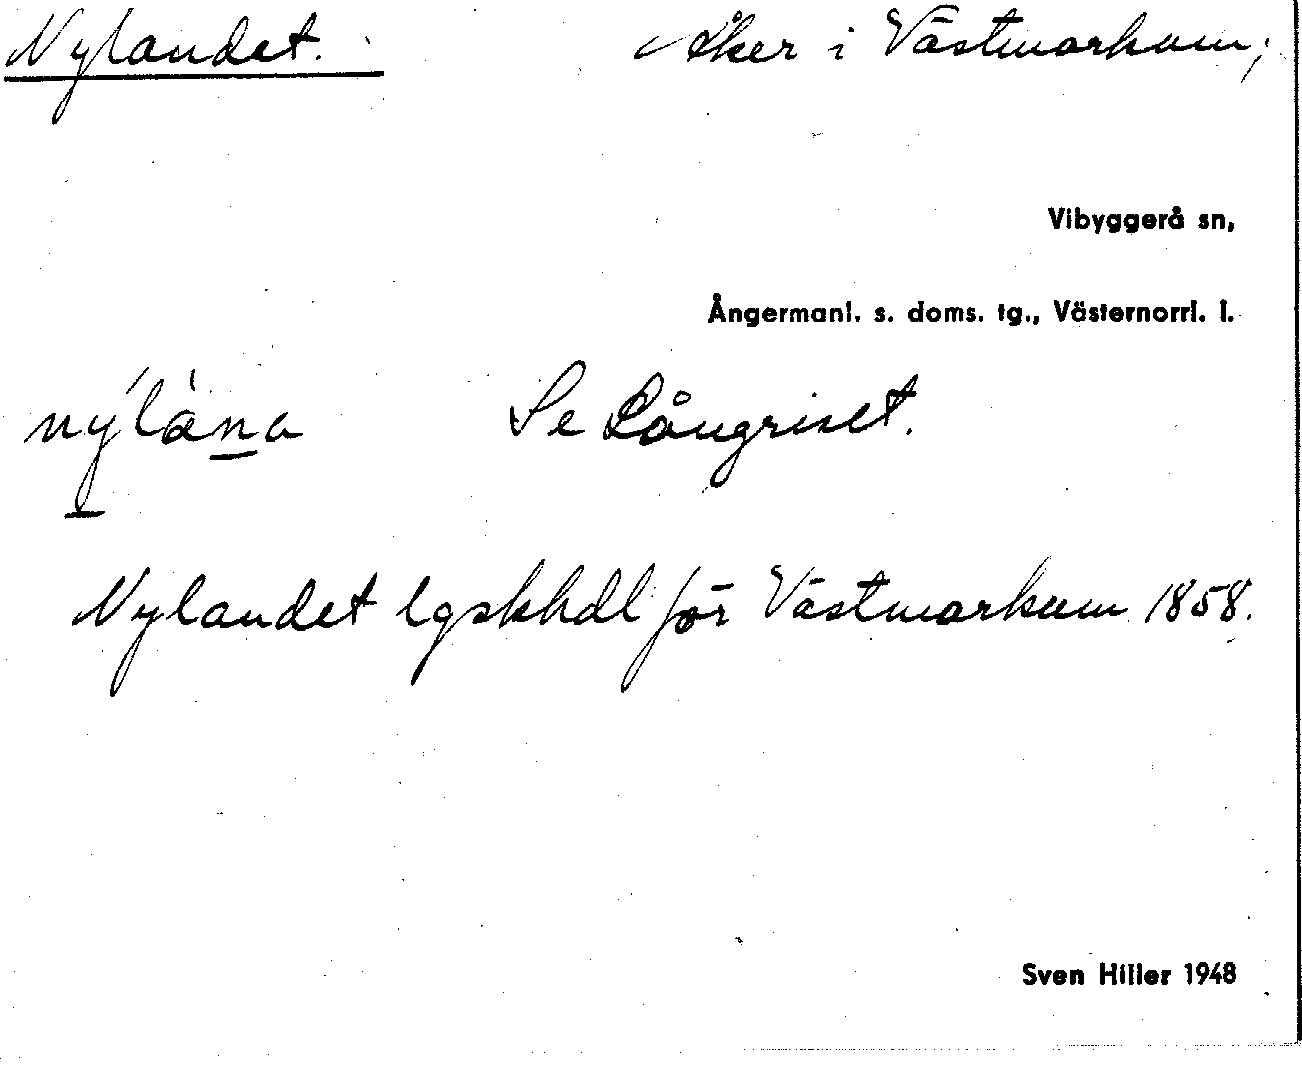 Nylandet. Åker i Västmarkum;
Vibyggerå sn,
Ångermanl. s. doms. tg., Västernorrl. l.
ny´làna Se Långriset.
Nylandet lgskhdl för Västmarkum 1858.
Sven Hiller 1948